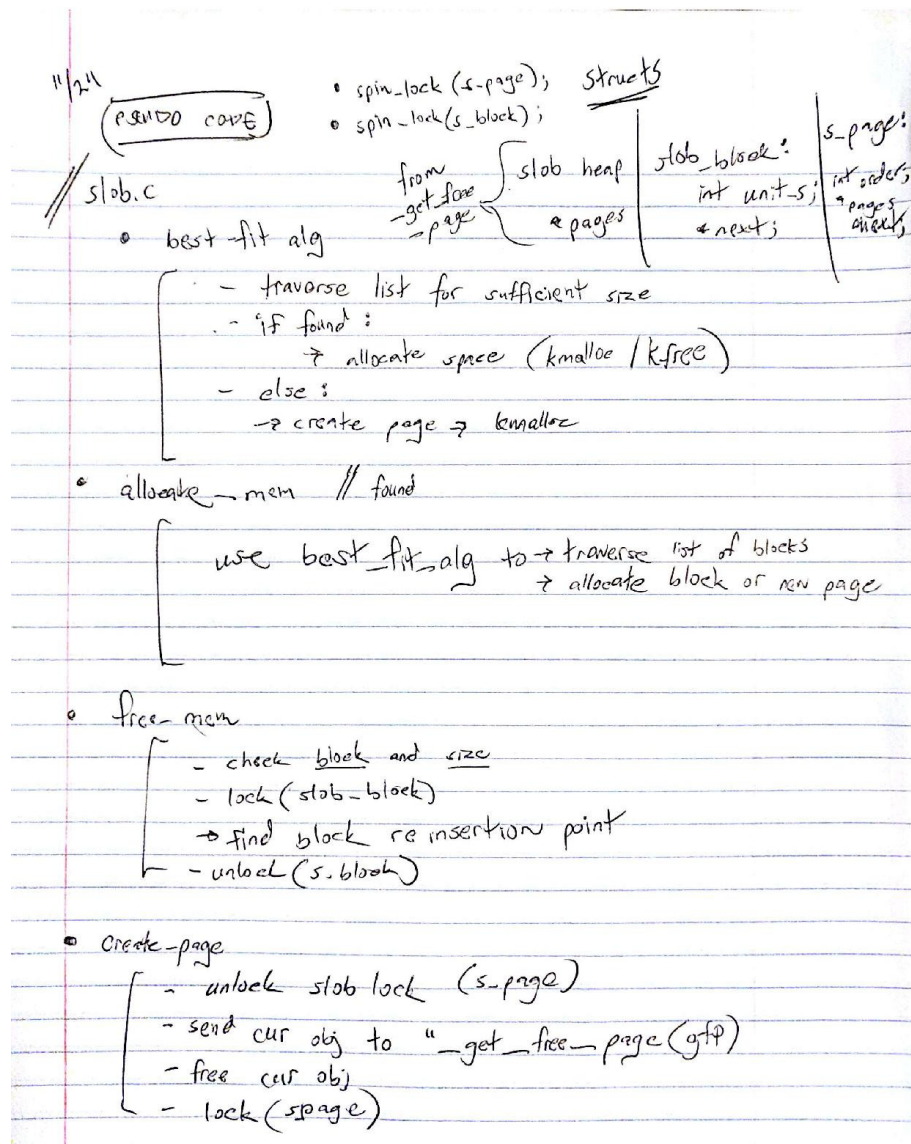 11/24
PSEUDO CODE
• spin_lock (s-page);
• spin-lock(s_block);
Structs
from
-get_free
-page
slob heap
* pages
slob_block:
int unit-s;
* next;
s-page:
int order;
*pages
*next;
// slob.c
• best-fit alg
- traverse list for sufficient size
- if found:
→ allocate space (kmalloc / kfree)
- else:
→ create page → kmalloc
• allocate_mem // found
use best_fit_alg to → traverse list of blocks
→ allocate block or new page
• free-mem
- check block and size
- lock(slob-block)
→ find block re insertion point
- unlock(s.block)
• create-page
- unlock slob lock (s-page)
- send cur obj to "_get_free_page(gfp)
- free cur obj
- lock(spage)